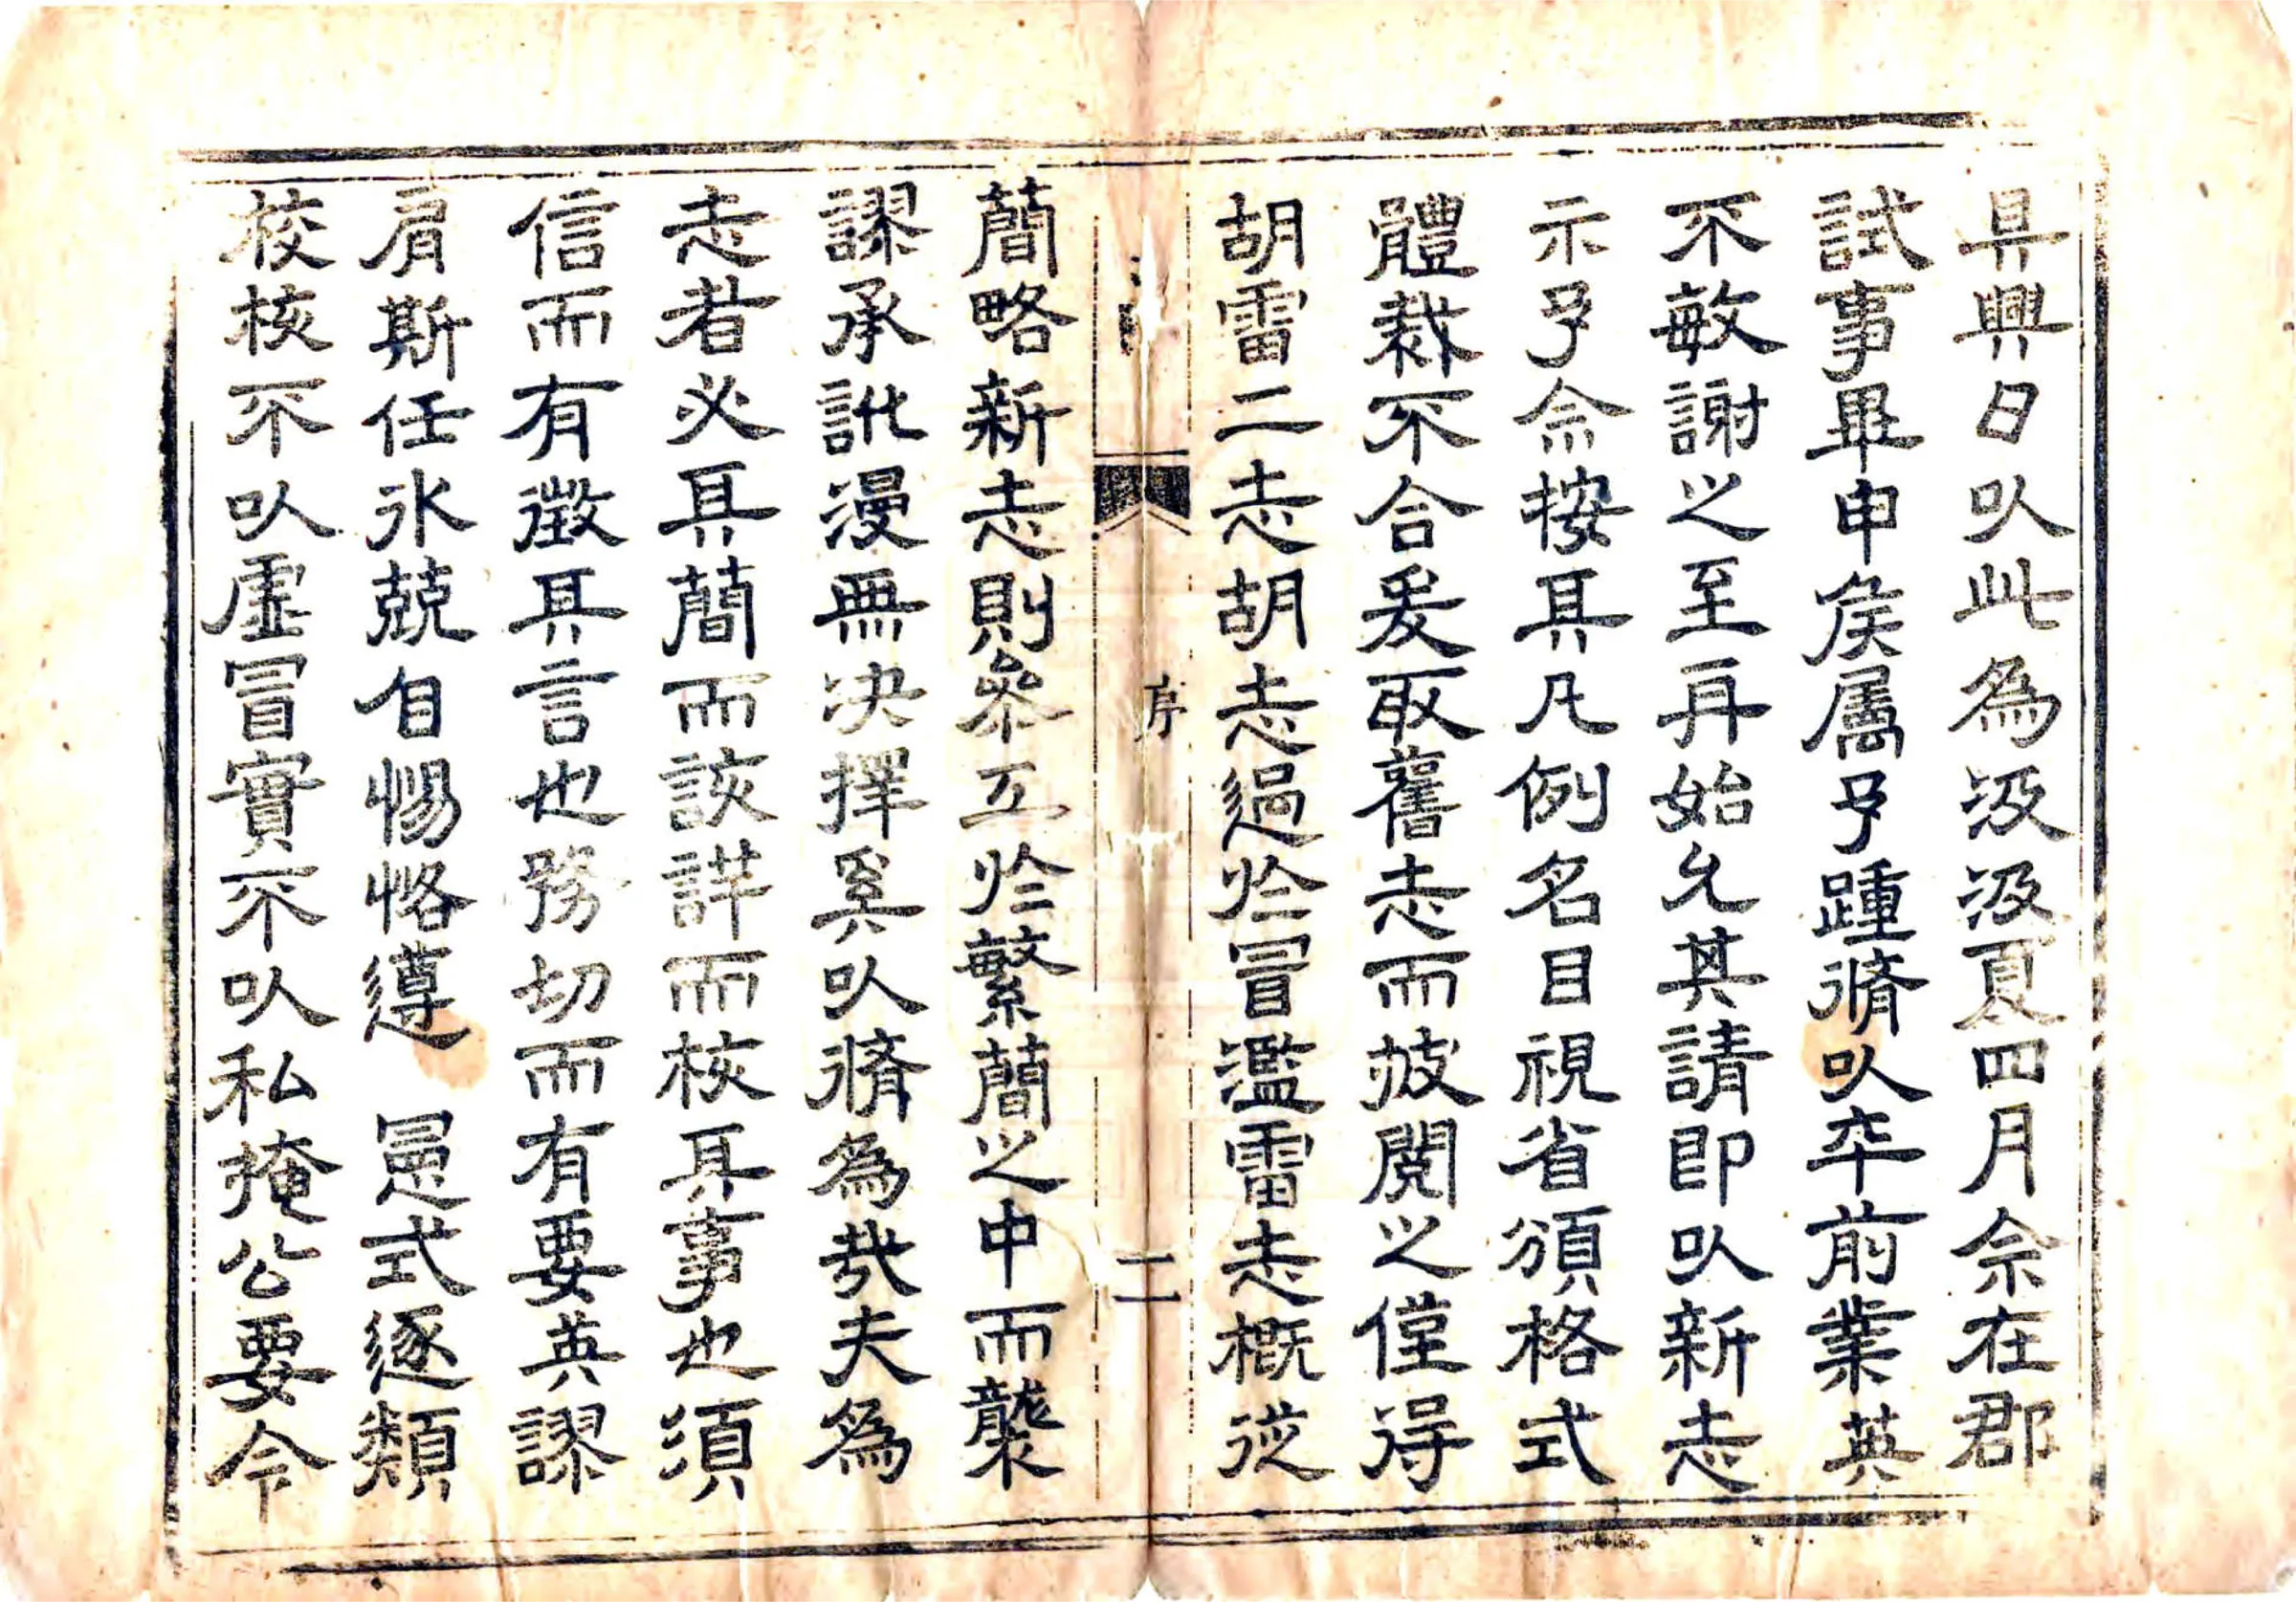 具興日㕥此為汲汲夏四月余在郡
試事畢申矦属予踵脩㕥卒前業英
不敏謝之至再始允其請即㕥新志
示予余按其凡例名目視省頒格式
體裁不合爰取舊志而披閱之僅得
胡雷二志胡志過於冒濫雷志概從
序
二
蕳略新志則參互於繁蕳之中而襲
謬承訛漫無决擇奚㕥脩為㢤夫為
志者必具蕳而該詳而核其事也須
信而有徵其言也務切而有要英謬
肩斯任氷兢自惕恪遵 憲式逐類
校核不㕥虛冒實不㕥私掩公要令